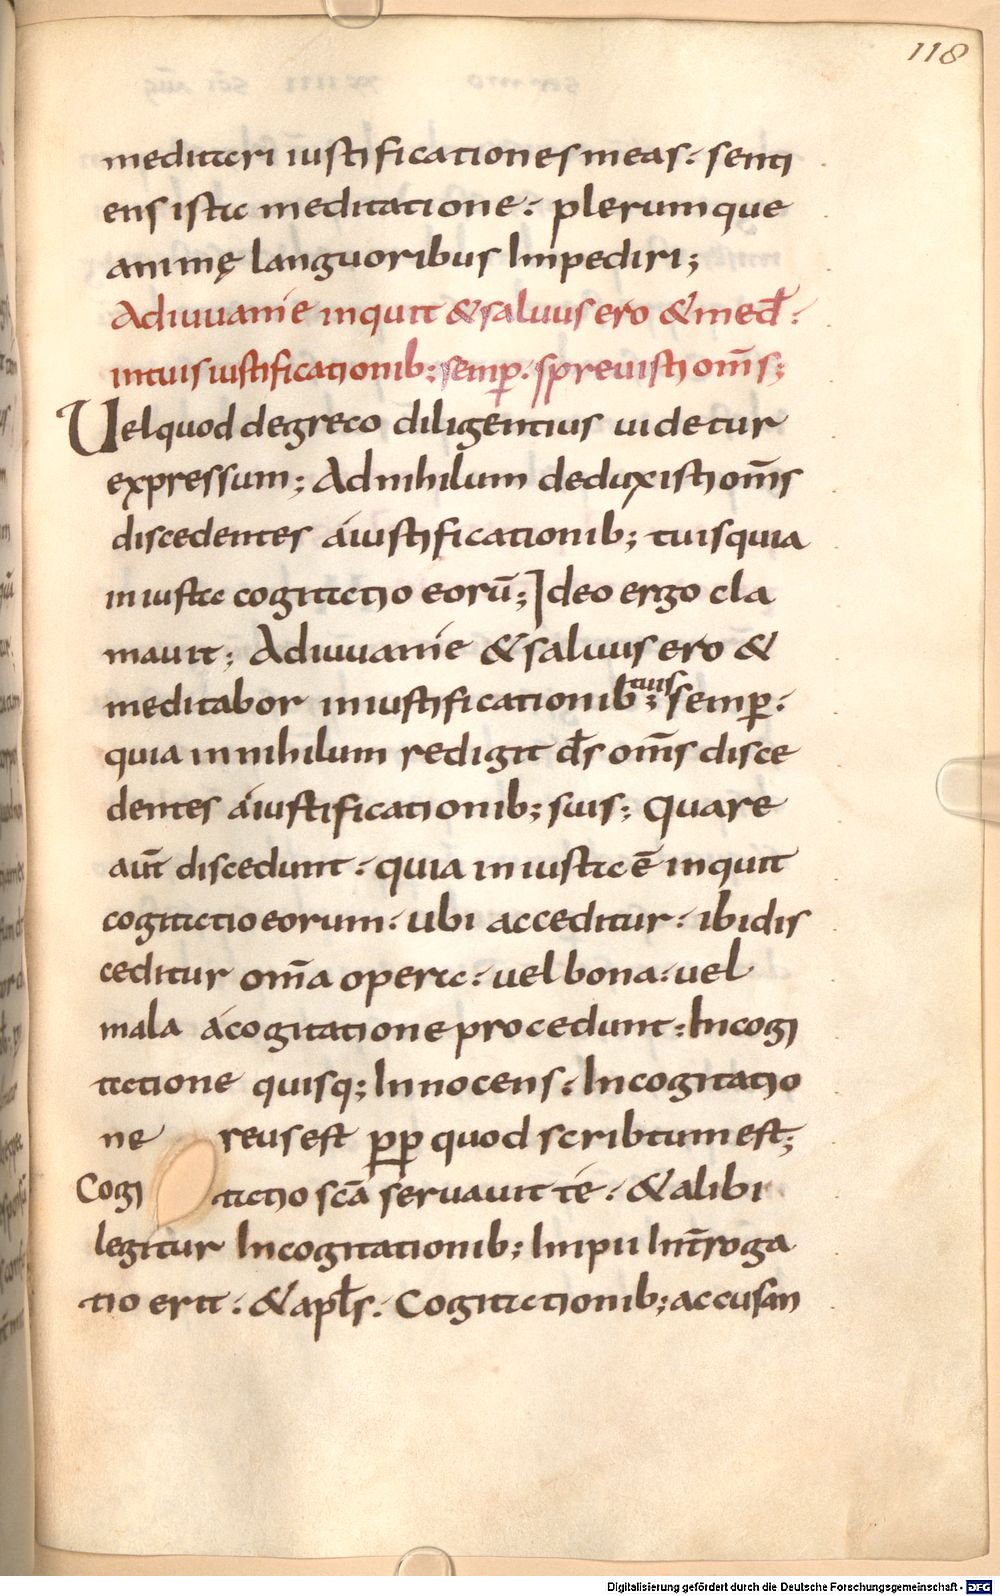 118
meditari iustificationes meas· senti
ens ista meditatione· plerumque
animę languoribus Impediri;
Adiuua me inquit & saluus ero & med̄·
in tuis iustificationib; semp̱· spreuisti om̄s;
Uel quod de greco diligentius uidetur
expressum; Ad nihilum deduxisti om̄s
discedentes á iustificationib; tuis quia
iniusta cogitatio eorū; Ideo ergo cla
mauit; Adiuua me & saluus ero &
meditabor in iustificationib; tuis semp̱·
quia in nihilum redigit d̄s om̄s disce
dentes á iustificationib; suis; Quare
aut̄ discedunt· quia iniusta ē inquit
cogitatio eorum· ubi acceditur· ibi dis
ceditur om̄a opera· uel bona· uel
mala á cogitatione procedunt· In cogi
tatione quisq; Innocens· In cogitatio
ne reus est p̱p̱ quod scribtum est;
Cogi tatio sc̄a seruauit té· & alibi
legitur In cogitationib; Impii Int̄roga
tio erit· & apl̄s· Cogitationib; accusan
Digitalisierung gefördert durch die Deutsche Forschungsgemeinschaft - DFG